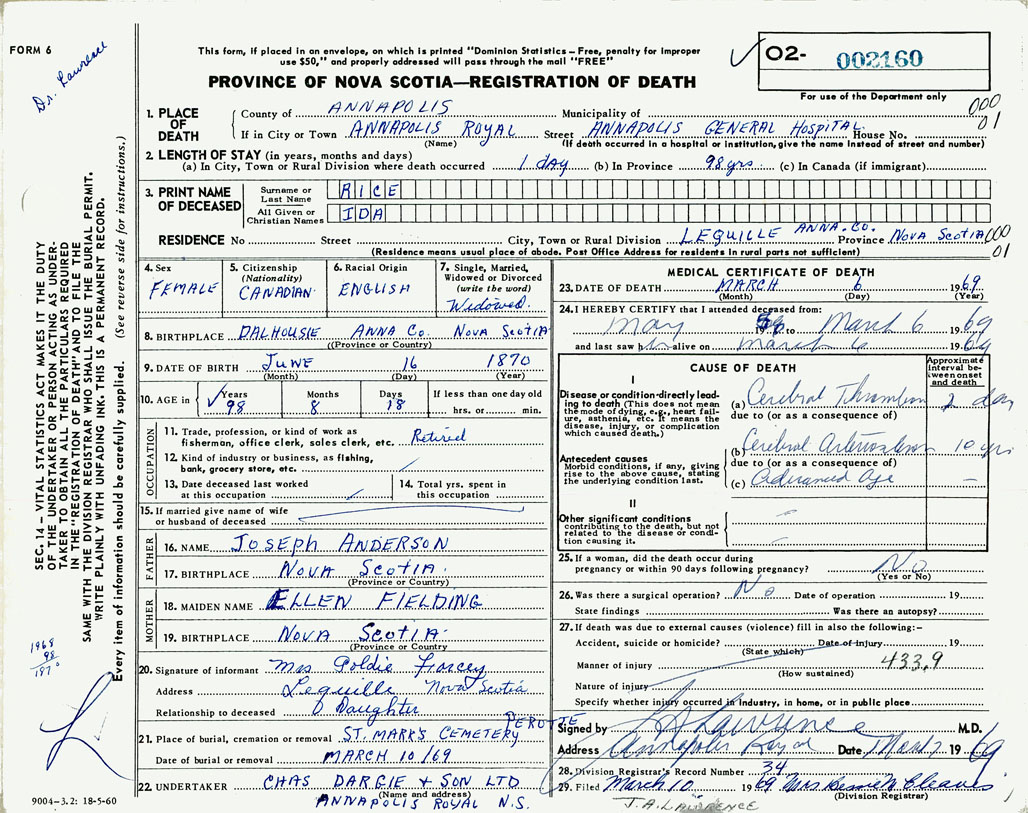 FORM 6
Dr. Lawrence
This form, if placed in an envelope, on which is printed "Dominion Statistics – Free, penalty for improper
use $50," and properly addressed will pass through the mail "FREE"
PROVINCE OF NOVA SCOTIA—REGISTRATION OF DEATH
O2- 002160
For use of the Department only
000
01
1. PLACE OF DEATH
County of ANNAPOLIS Municipality of
If in City or Town ANNAPOLIS ROYAL Street ANNAPOLIS GENERAL HOSPITAL House No.
(Name) (If death occurred in a hospital or institution, give the name instead of street and number)
2. LENGTH OF STAY (in years, months and days)
(a) In City, Town or Rural Division where death occurred 1 day (b) In Province 98 yrs. (c) In Canada (if immigrant)
3. PRINT NAME OF DECEASED
Surname or Last Name RICE
All Given or Christian Names IDA
RESIDENCE No Street City, Town or Rural Division LEQUILLE ANNA. CO. Province NOVA SCOTIA 000
01
(Residence means usual place of abode. Post Office Address for residents in rural parts not sufficient)
4. Sex
FEMALE
5. Citizenship
(Nationality)
CANADIAN
6. Racial Origin
ENGLISH
7. Single, Married,
Widowed or Divorced
(write the word)
Widowed.
8. BIRTHPLACE DALHOUSIE ANNA Co. NOVA SCOTIA
((Province or Country)
9. DATE OF BIRTH JUNE 16 1870
(Month) (Day) (Year)
10. AGE in Years Months Days If less than one day old
98 8 18 hrs. or min.
OCCUPATION
11. Trade, profession, or kind of work as
fisherman, office clerk, sales clerk, etc. Retired
12. Kind of industry or business, as fishing,
bank, grocery store, etc.
13. Date deceased last worked
at this occupation
14. Total yrs. spent in
this occupation
15. If married give name of wife
or husband of deceased
FATHER
16. NAME JOSEPH ANDERSON
17. BIRTHPLACE NOVA SCOTIA
(Province or Country)
MOTHER
18. MAIDEN NAME ELLEN FIELDING
19. BIRTHPLACE NOVA SCOTIA
(Province or Country)
20. Signature of informant Mrs Goldie
Address Lequille Nova Scotia
Relationship to deceased Daughter
21. Place of burial, cremation or removal ST. MARK'S CEMETERY PEROTTE
Date of burial or removal MARCH 10/69
22. UNDERTAKER CHAS DARGIE + SON LTD
(Name and address)
ANNAPOLIS ROYAL N.S.
9004–3.2: 18-5-60
MEDICAL CERTIFICATE OF DEATH
23. DATE OF DEATH MARCH 6 1969
(Month) (Day) (Year)
24. I HEREBY CERTIFY that I attended deceased from:
May 19 to March 6 1969
and last saw h alive on March 6 1969
CAUSE OF DEATH
Approximate
interval be-
tween onset
and death
I
Disease or condition directly lead-
ing to death (This does not mean
the mode of dying, e.g., heart fail-
ure, asthenia, etc. It means the
disease, injury, or complication
which caused death.)
(a) Cerebral Thrombosis 2 days
due to (or as a consequence of)
Antecedent causes
Morbid conditions, if any, giving
rise to the above cause, stating
the underlying condition last.
(b) Cerebral 10 yrs
due to (or as a consequence of)
(c) Advanced Age –
II
Other significant conditions
contributing to the death, but not
related to the disease or condi-
tion causing it.
25. If a woman, did the death occur during
pregnancy or within 90 days following pregnancy? No
(Yes or No)
26. Was there a surgical operation? No Date of operation 19
State findings Was there an autopsy?
27. If death was due to external causes (violence) fill in also the following:–
Accident, suicide or homicide? Date of injury 19
(State which)
Manner of injury 433.9
(How sustained)
Nature of injury
Specify whether injury occurred in industry, in home, or in public place
Signed by Lawrence M.D.
Address Annapolis Royal Date Mar 7 1969
28. Division Registrar's Record Number 34
29. Filed March 10 1969 Mrs Bessie N. Cleaves
(Division Registrar)
J. A. LAWRENCE
SEC. 14 – VITAL STATISTICS ACT MAKES IT THE DUTY
OF THE UNDERTAKER OR PERSON ACTING AS UNDER-
TAKER TO OBTAIN ALL THE PARTICULARS REQUIRED
IN THE "REGISTRATION OF DEATH" AND TO FILE THE
SAME WITH THE DIVISION REGISTRAR WHO SHALL ISSUE THE BURIAL PERMIT.
WRITE PLAINLY WITH UNFADING INK. THIS IS A PERMANENT RECORD.
Every item of information should be carefully supplied. (See reverse side for instructions.)
1968
98
1870